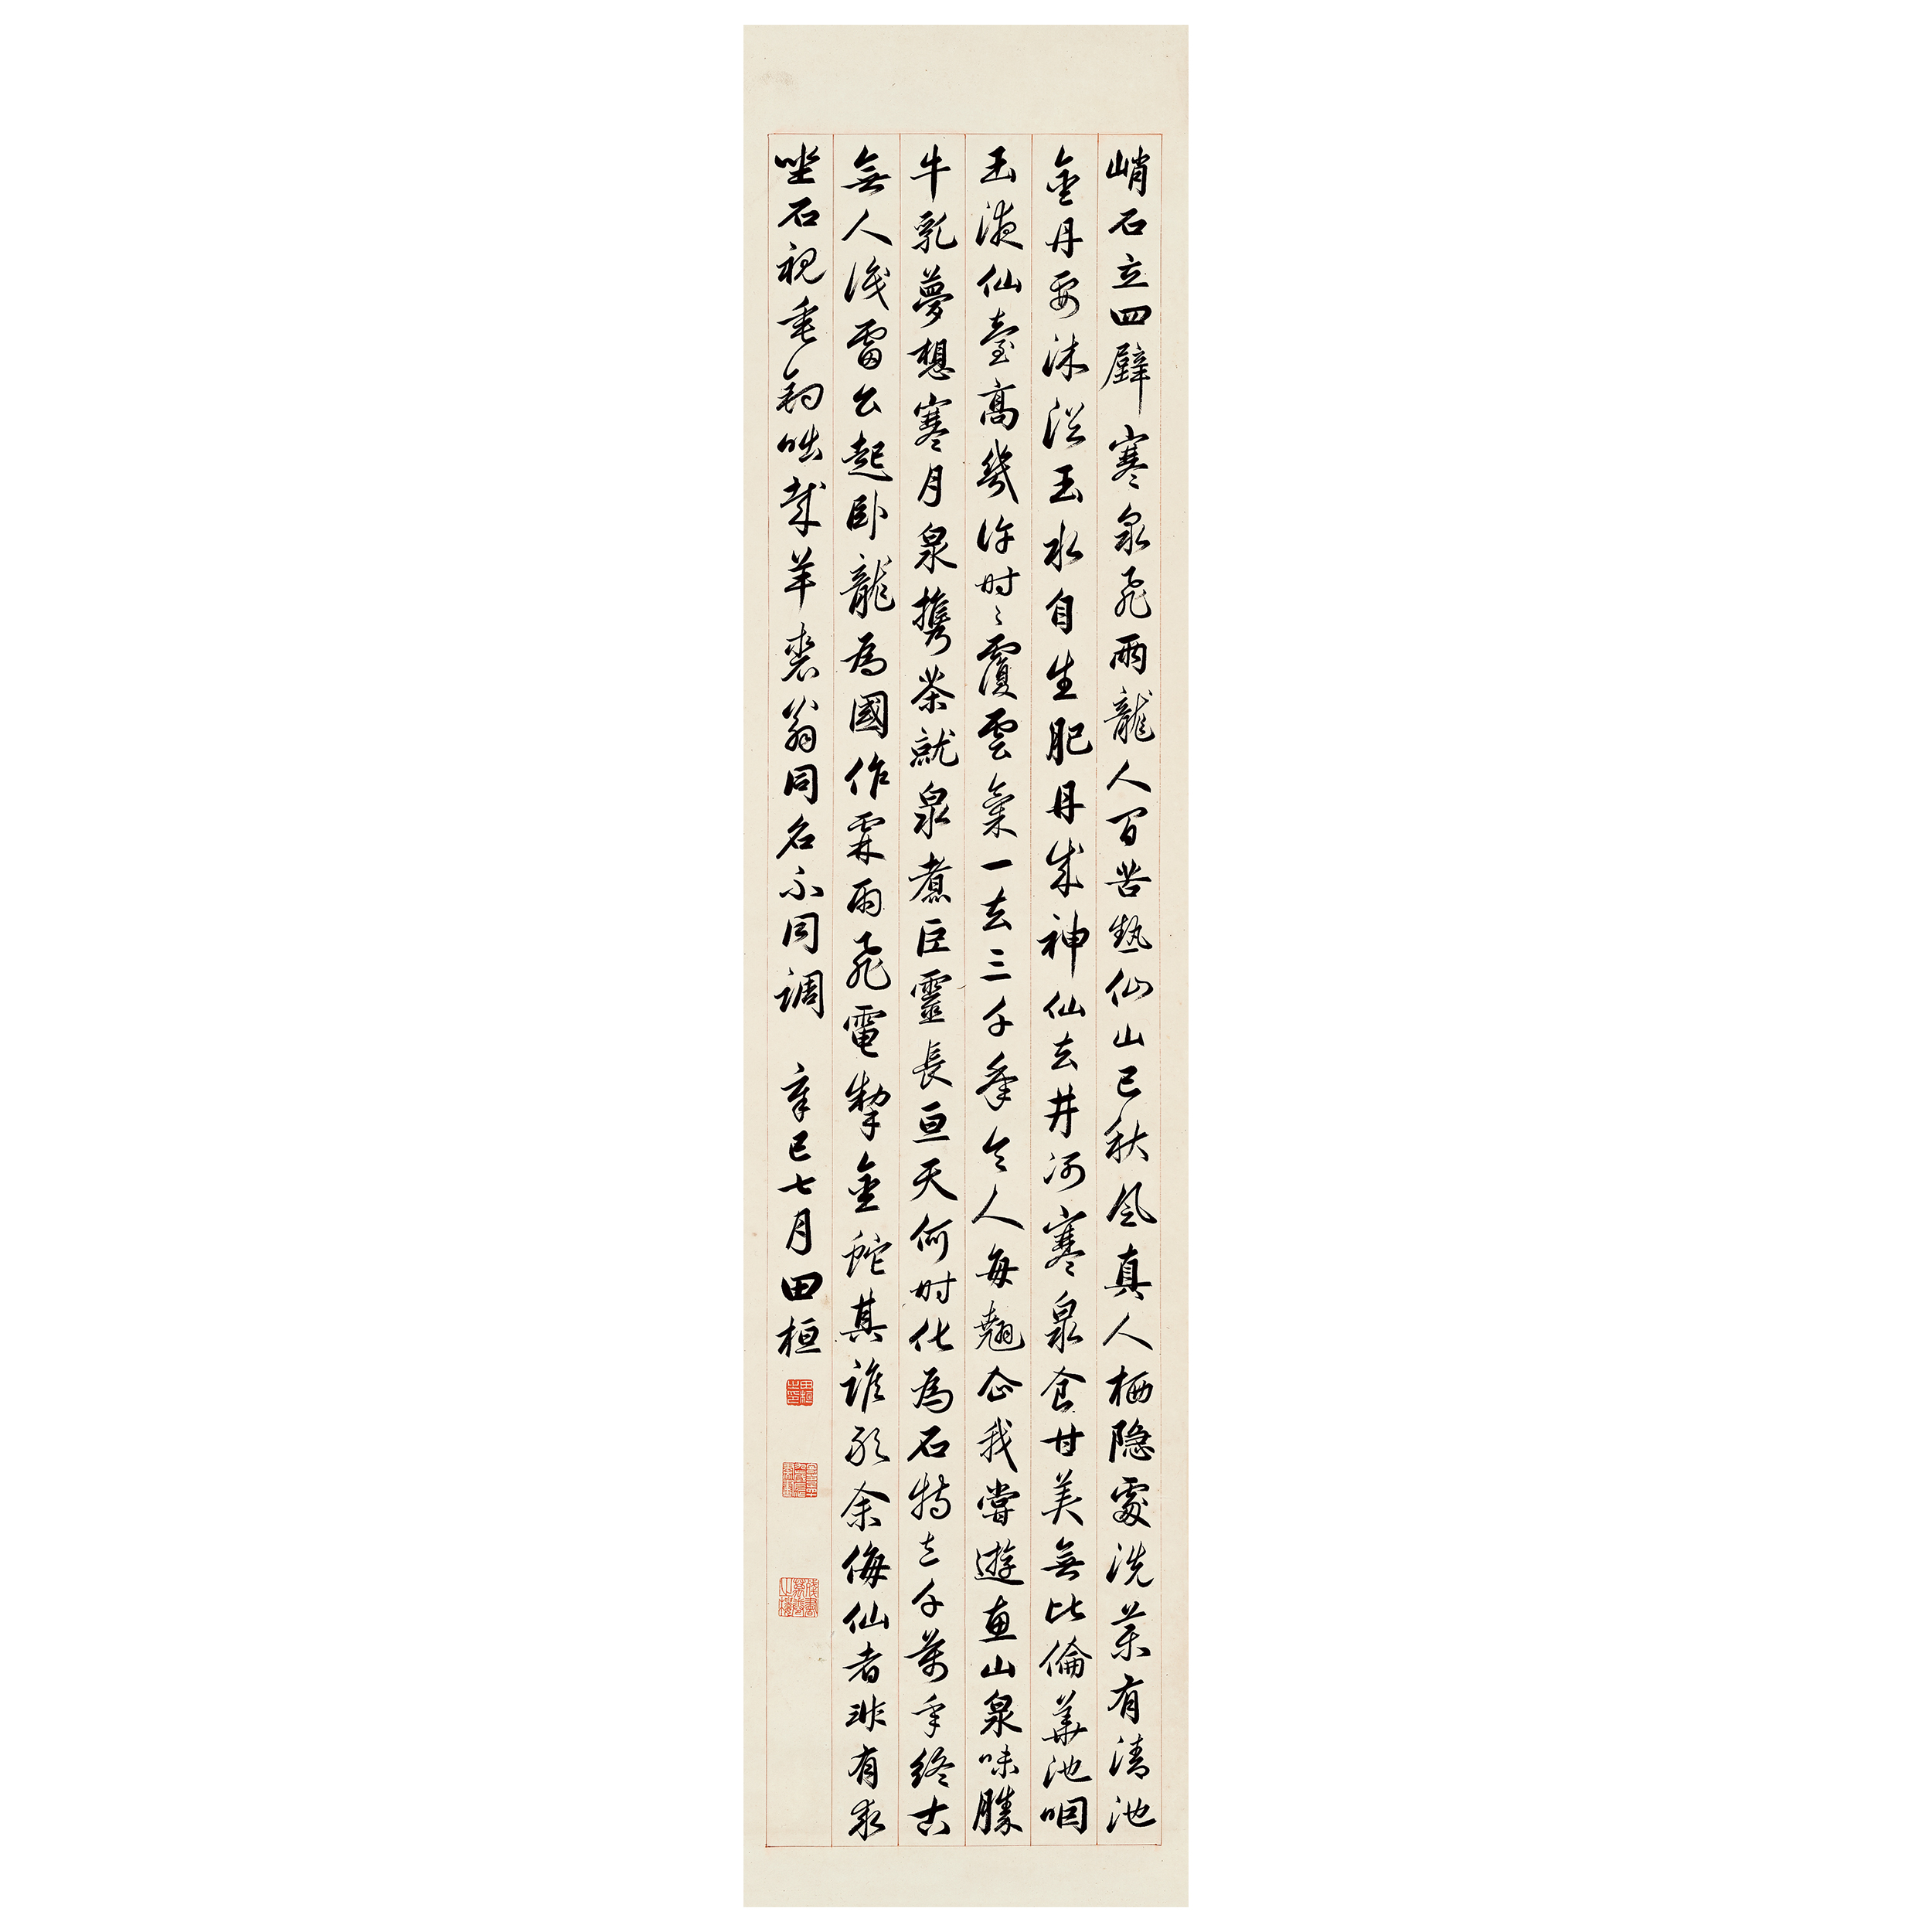 峭石立四壁寒泉飛兩龍人間苦熱仙山已秋風真人栖隐處洗藥有清池
金丹要沐浴玉水自生肥丹成神仙去井冽寒泉食甘美無比倫華池咽
玉液仙臺高幾许时〻覆雲氣一去三千年令人每翹企我嘗遊惠山泉味勝
牛乳夢想寒月泉携茶就泉煮巨靈長亘天何时化為石特立千萬年終古
無人識雷公起卧龍為國作霖雨飛電掣金蛇其誰敢余侮仙者非有求
坐石視垂釣咄哉羊裘翁同名不同調 辛巳七月田桓